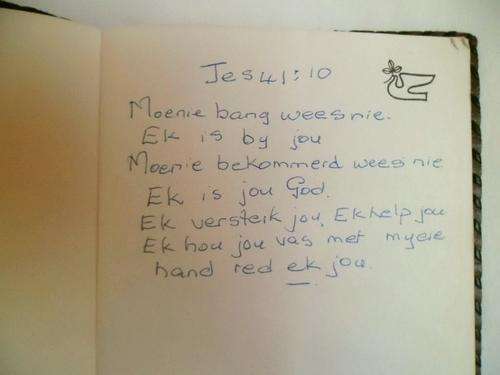 Jes 41:10
Moenie bang wees nie.
Ek is by jou
Moenie bekommerd wees nie
Ek is jou God.
Ek versterk jou, Ek help jou
Ek hou jou vas met myeie
hand red ek jou.